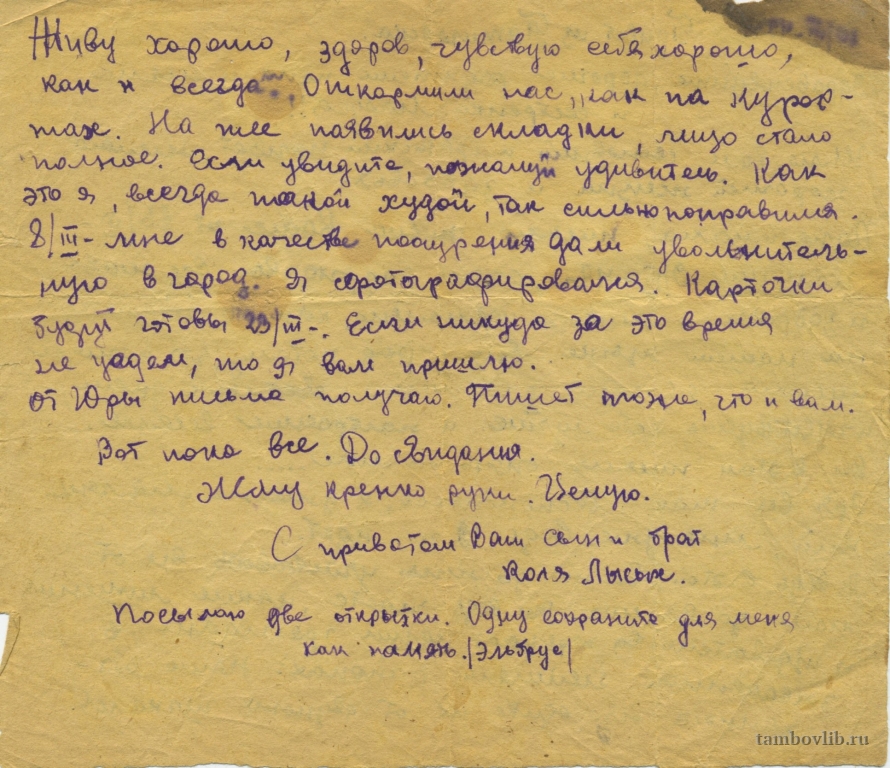 Живу хорошо, здоров, чувствую себя хорошо,
как и всегда. Откормили нас, как на курор-
тах. На шее появились складки, лицо стало
полное. Если увидите, пожалуй удивитесь. Как
это я, всегда такой худой, так сильно поправился.
8/III - мне в качестве поощрения дали увольнитель-
ную в город. Я сфотографировался. Карточки
будут готовы 23/III-. Если никуда за это время
не уедем, то я вам пришлю.
От Юры письма получаю. Пишет тоже, что и вам.
Вот пока все. До свидания.
Жму крепко руки. Целую.
С приветом Ваш сын и брат
Коля Лысых.
Посылаю две открытки. Одну сохраните для меня
как память. /Эльбрус/
tambovlib.ru